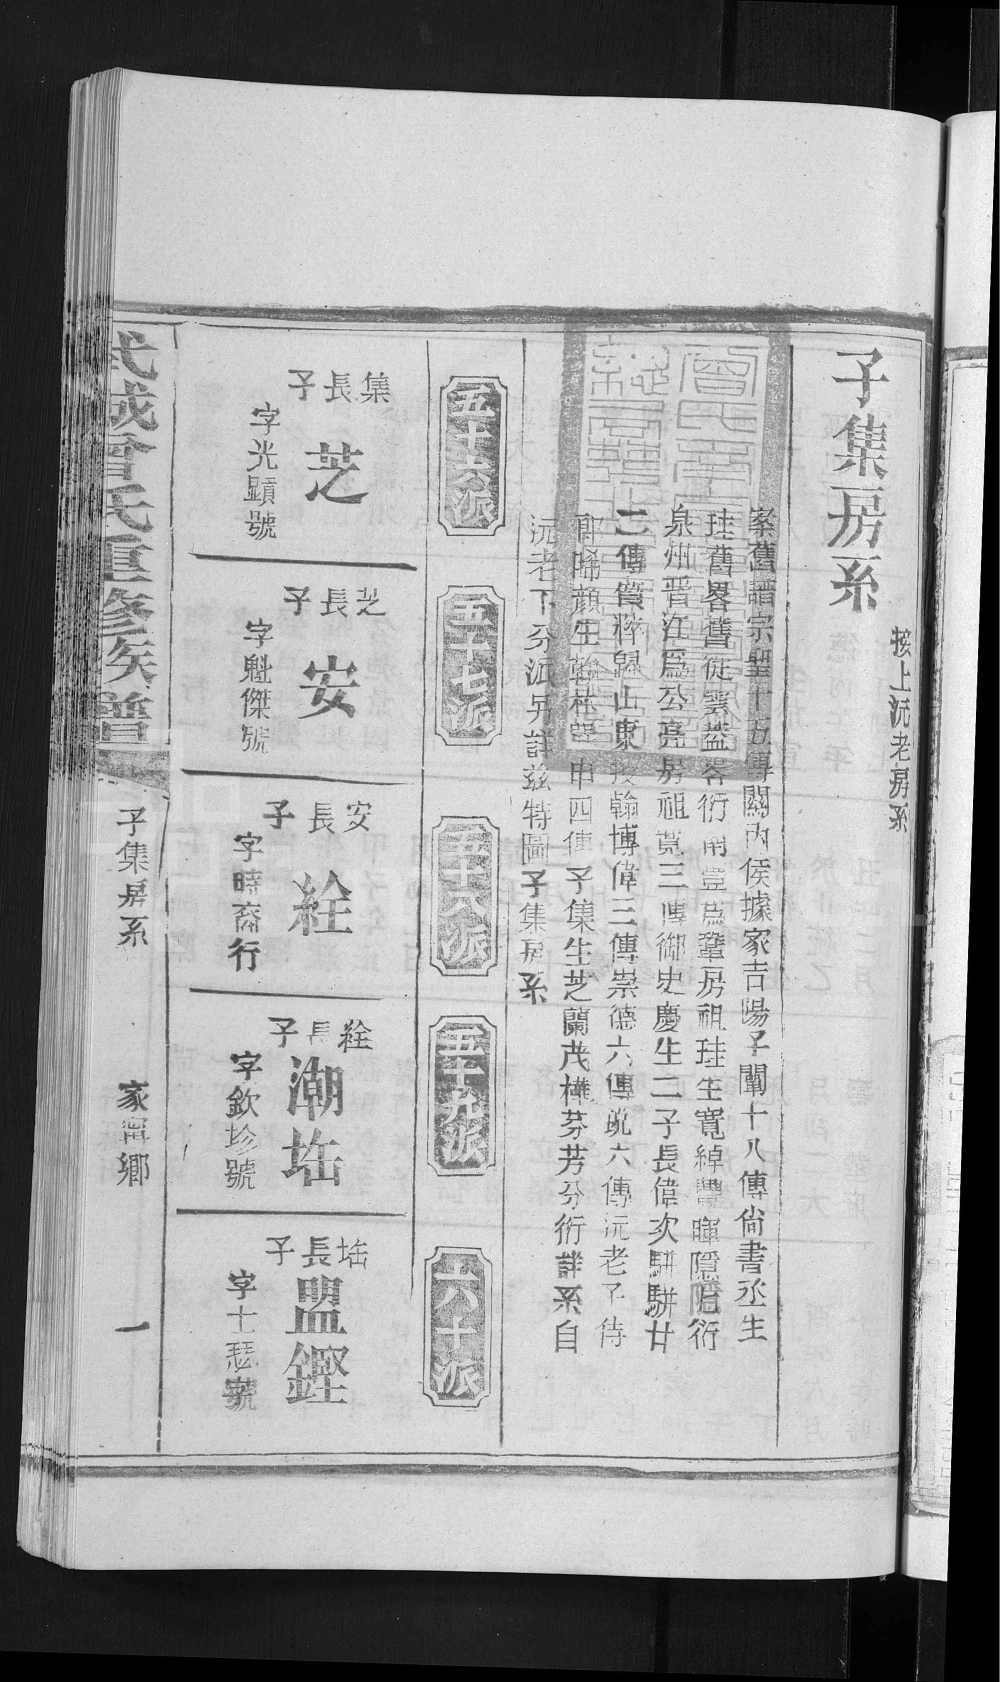 子集房系
按上沅老房系
案舊譜宗聖十五傳關內侯據家吉陽子闡十八傳尚書丞生
珪舊畧舊從雲蓋各衍前豈為鞏房祖珪生寬綽豐暉隱隨衍
泉州晋江為公亮房祖寬三傳御史慶生二子長偉次駢駢廿
二傳質粹歸山東授翰博偉三傳崇德六傳 六傳沅老子侍
郎晞顔生 四傳子集生芝蘭茂樺芬芳分衍詳系自
沅老下分派另詳兹特圖子集房系
五十六派
五十七派
五十八派
五十九派
六十派
集長子
芝
字光顯號
芝長子
安
字魁傑號
安長子
絟
字時裔行
絟長子
潮垢
字欽珍號
垢長子
盟鏗
字士瑟號
武城曾氏重修族譜
子集房系
家甯鄉
一